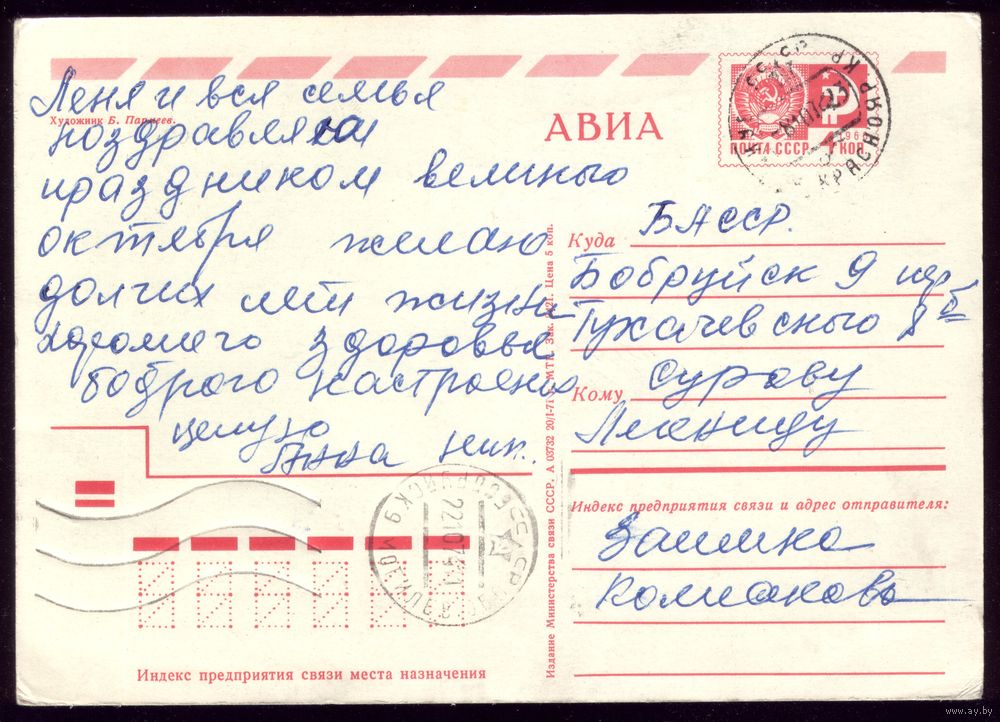 Леня и вся семья
Художник Б. Пармеев.
поздравляю
праздником великого
октября желаю
долгих лет жизни
хорошего здоровья
бодрого настроения
целую
Анна Ник.
АВИА
ПОЧТА СССР
4 КОП
Куда БАССР.
Бобруйск 9 пер
Тухачевского 8
Кому Сурову
Леониду
Индекс предприятия связи и адрес отправителя:
Колпакова
Издание Министерства связи СССР. А 03732 20/I-71 г. МТГ. Зак. 821. Цена 5 коп.
БОБРУЙСК 9
Индекс предприятия связи места назначения
www.ay.by